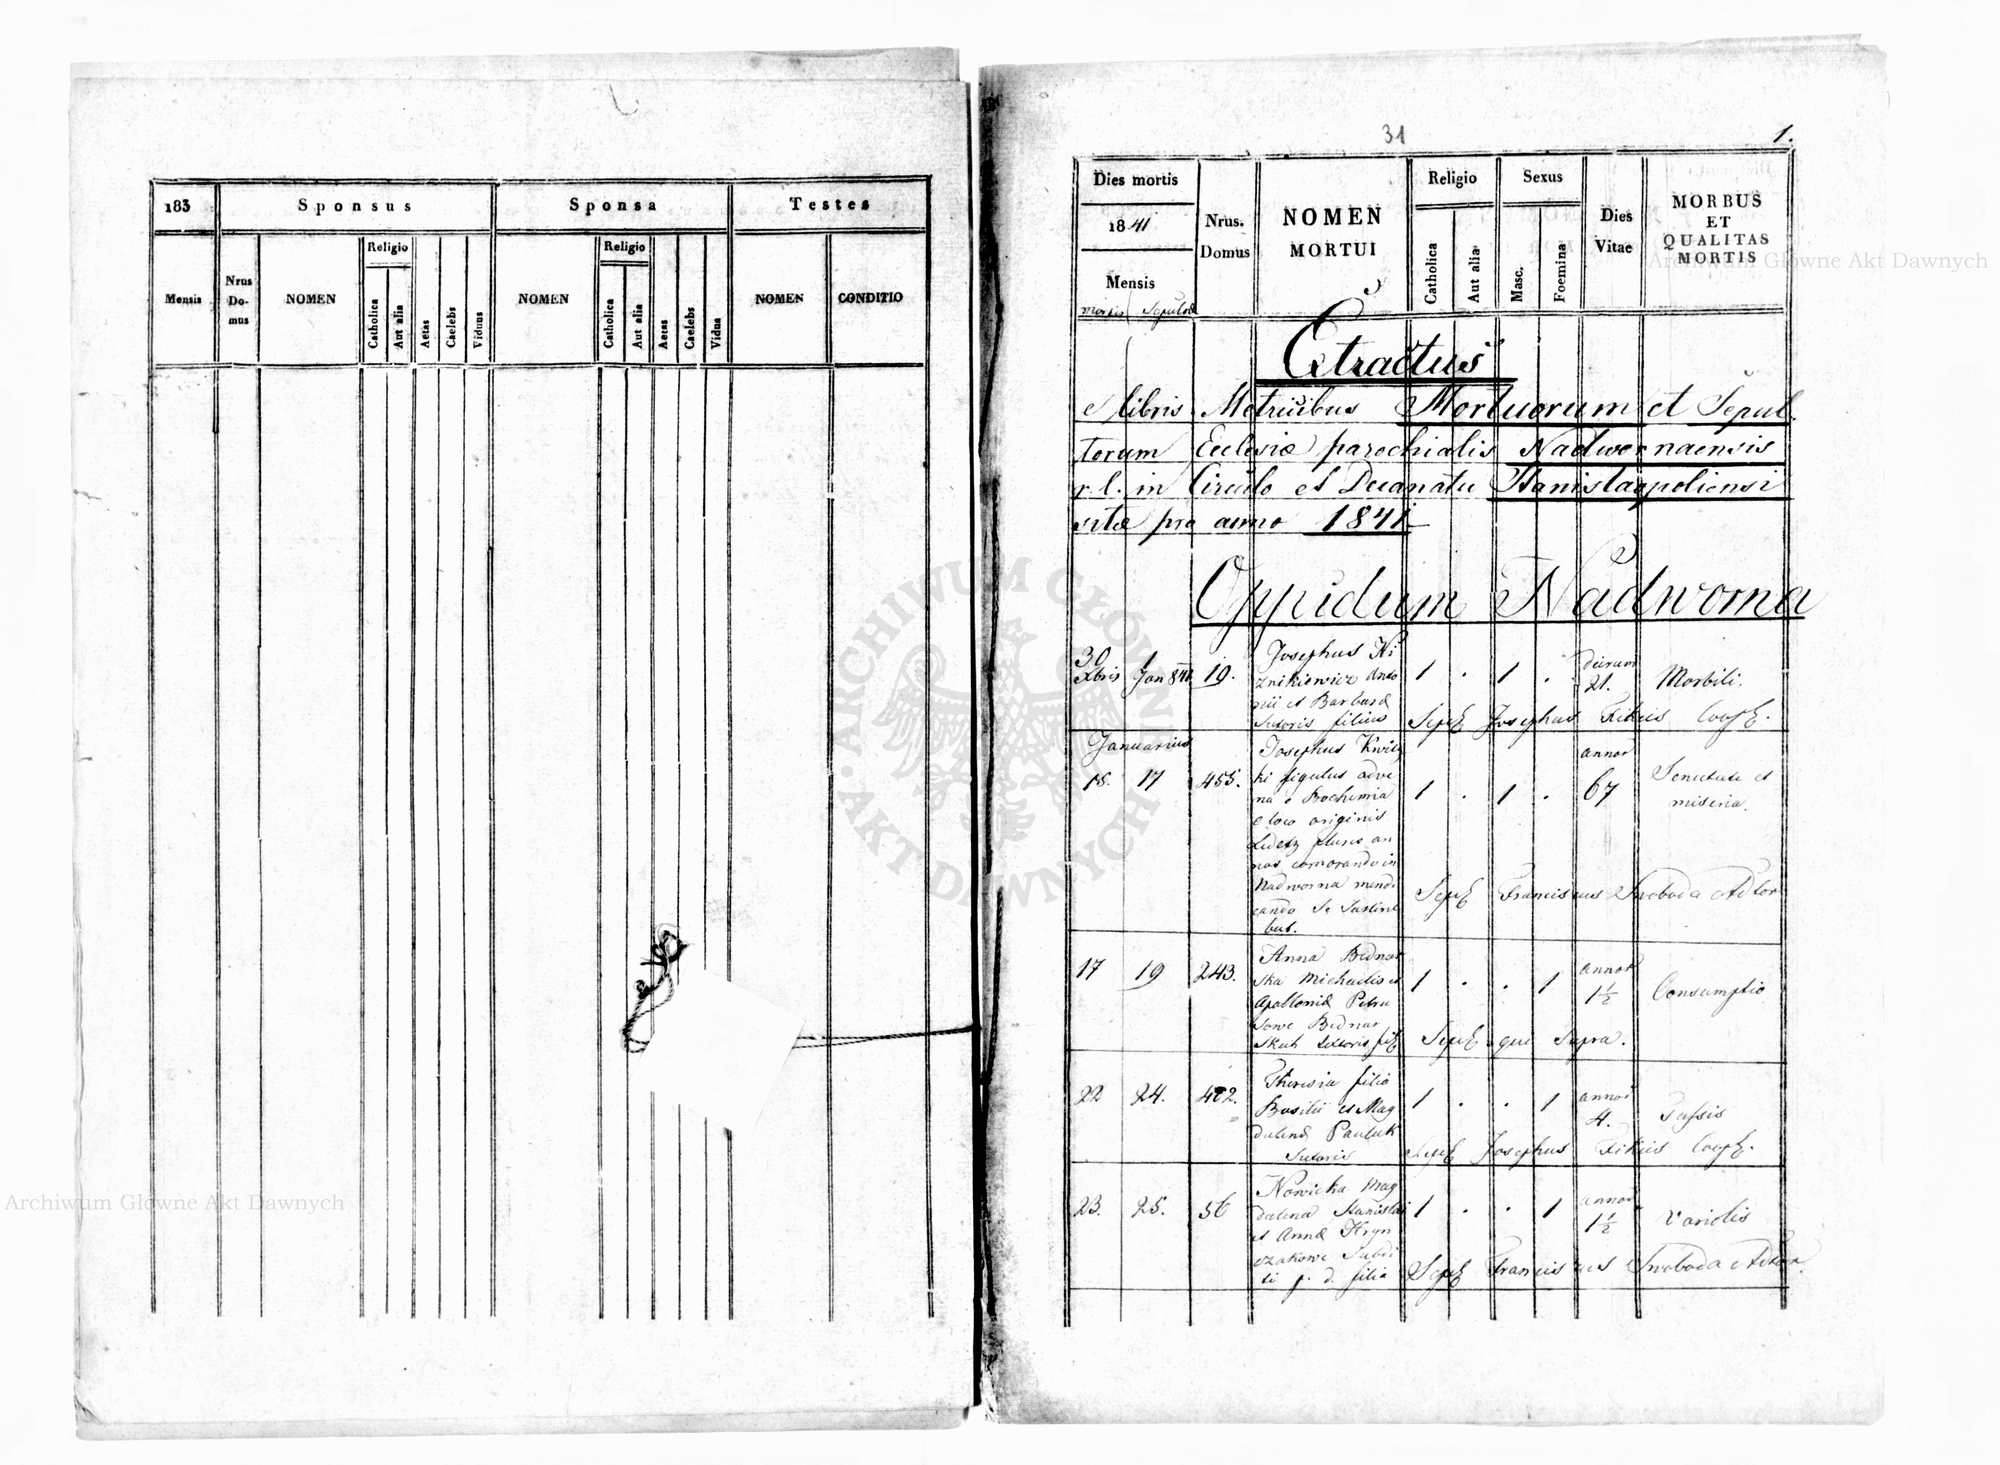 183
Sponsus
Sponsa
Testes
Mensis
Nrus
Do-
mus
NOMEN
Religio
Catholica
Aut alia
Aetas
Caelebs
Viduus
NOMEN
Religio
Catholica
Aut alia
Aetas
Caelebs
Vidua
NOMEN
CONDITIO
31
1.
Dies mortis
1841
Mensis
mortis Sepult
Nrus.
Domus
NOMEN
MORTUI
Religio
Catholica
Aut alia
Sexus
Masc.
Foemina
Dies
Vitae
MORBUS
ET
QUALITAS
MORTIS
Extractus
e libris Metricibus Mortuorum et Sepul
torum Ecclesiæ parochialis Nadwornaensis
r. l. in Circulo et Decanatu Stanislaopoliensi
sitæ pro anno 1841
Oppidum Nadworna
30 1
Xbris Jan 841 19.
Josephus Ki
znikiewicz Anto
nii et Barbaræ
Sutoris filius
1 . 1 .
dierum
21.
Morbili.
Sepel Josephus Coop.
Januarius
15. 17 455.
Josephus
ki figulus adve
na e Bochemia
e loco originis
plures an
nos comorando in
Nadworna mendi
cando se sustine
bat.
1 . 1 .
annor
67
Senectute et
miseria.
Sepel Franciscus Swoboda Adtor
17 19 243.
Anna Bednar
ska Michaelis et
Apolloniæ Petru
sowe Bednar
skich fil
1 . . 1
annor
1½
Consumptio
Sepel qui supra.
22 24. 472.
Theresia filia
Basilii et Mag
dalenæ Pauluk
Sutoris
1 . . 1
annor
4.
Tussis
Sepel Josephus Coop.
23. 25. 56
Nowicka Mag
dalena Stanislai
et Annæ Hryn
czakowe Subdi
ti p. d. filia
1 . . 1
annor
1½
Variolis
Sepel Franciscus Swoboda Adtor.
Archiwum Główne Akt Dawnych
Archiwum Główne Akt Dawnych
ARCHIWUM GŁÓWNE
AKT DAWNYCH